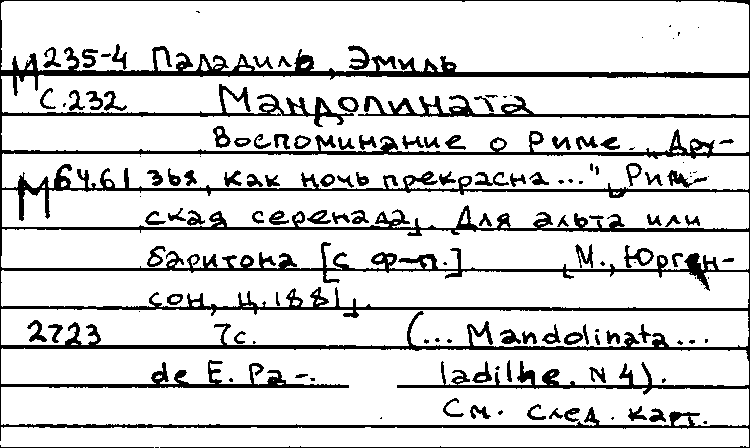 М 235-4 Паладиль, Эмиль
С.232 Мандолината
Воспоминание о Риме. „Дру-
М 64.61 зья, как ночь прекрасна..." [Рим-
ская серенада]. Для альта или
баритона [с ф-п.] [М., Юрген-
сон, ц.1881].
2723 7с. (... Mandolinata...
de E. Pa-
ladilhe. N 4).
См. след. карт.